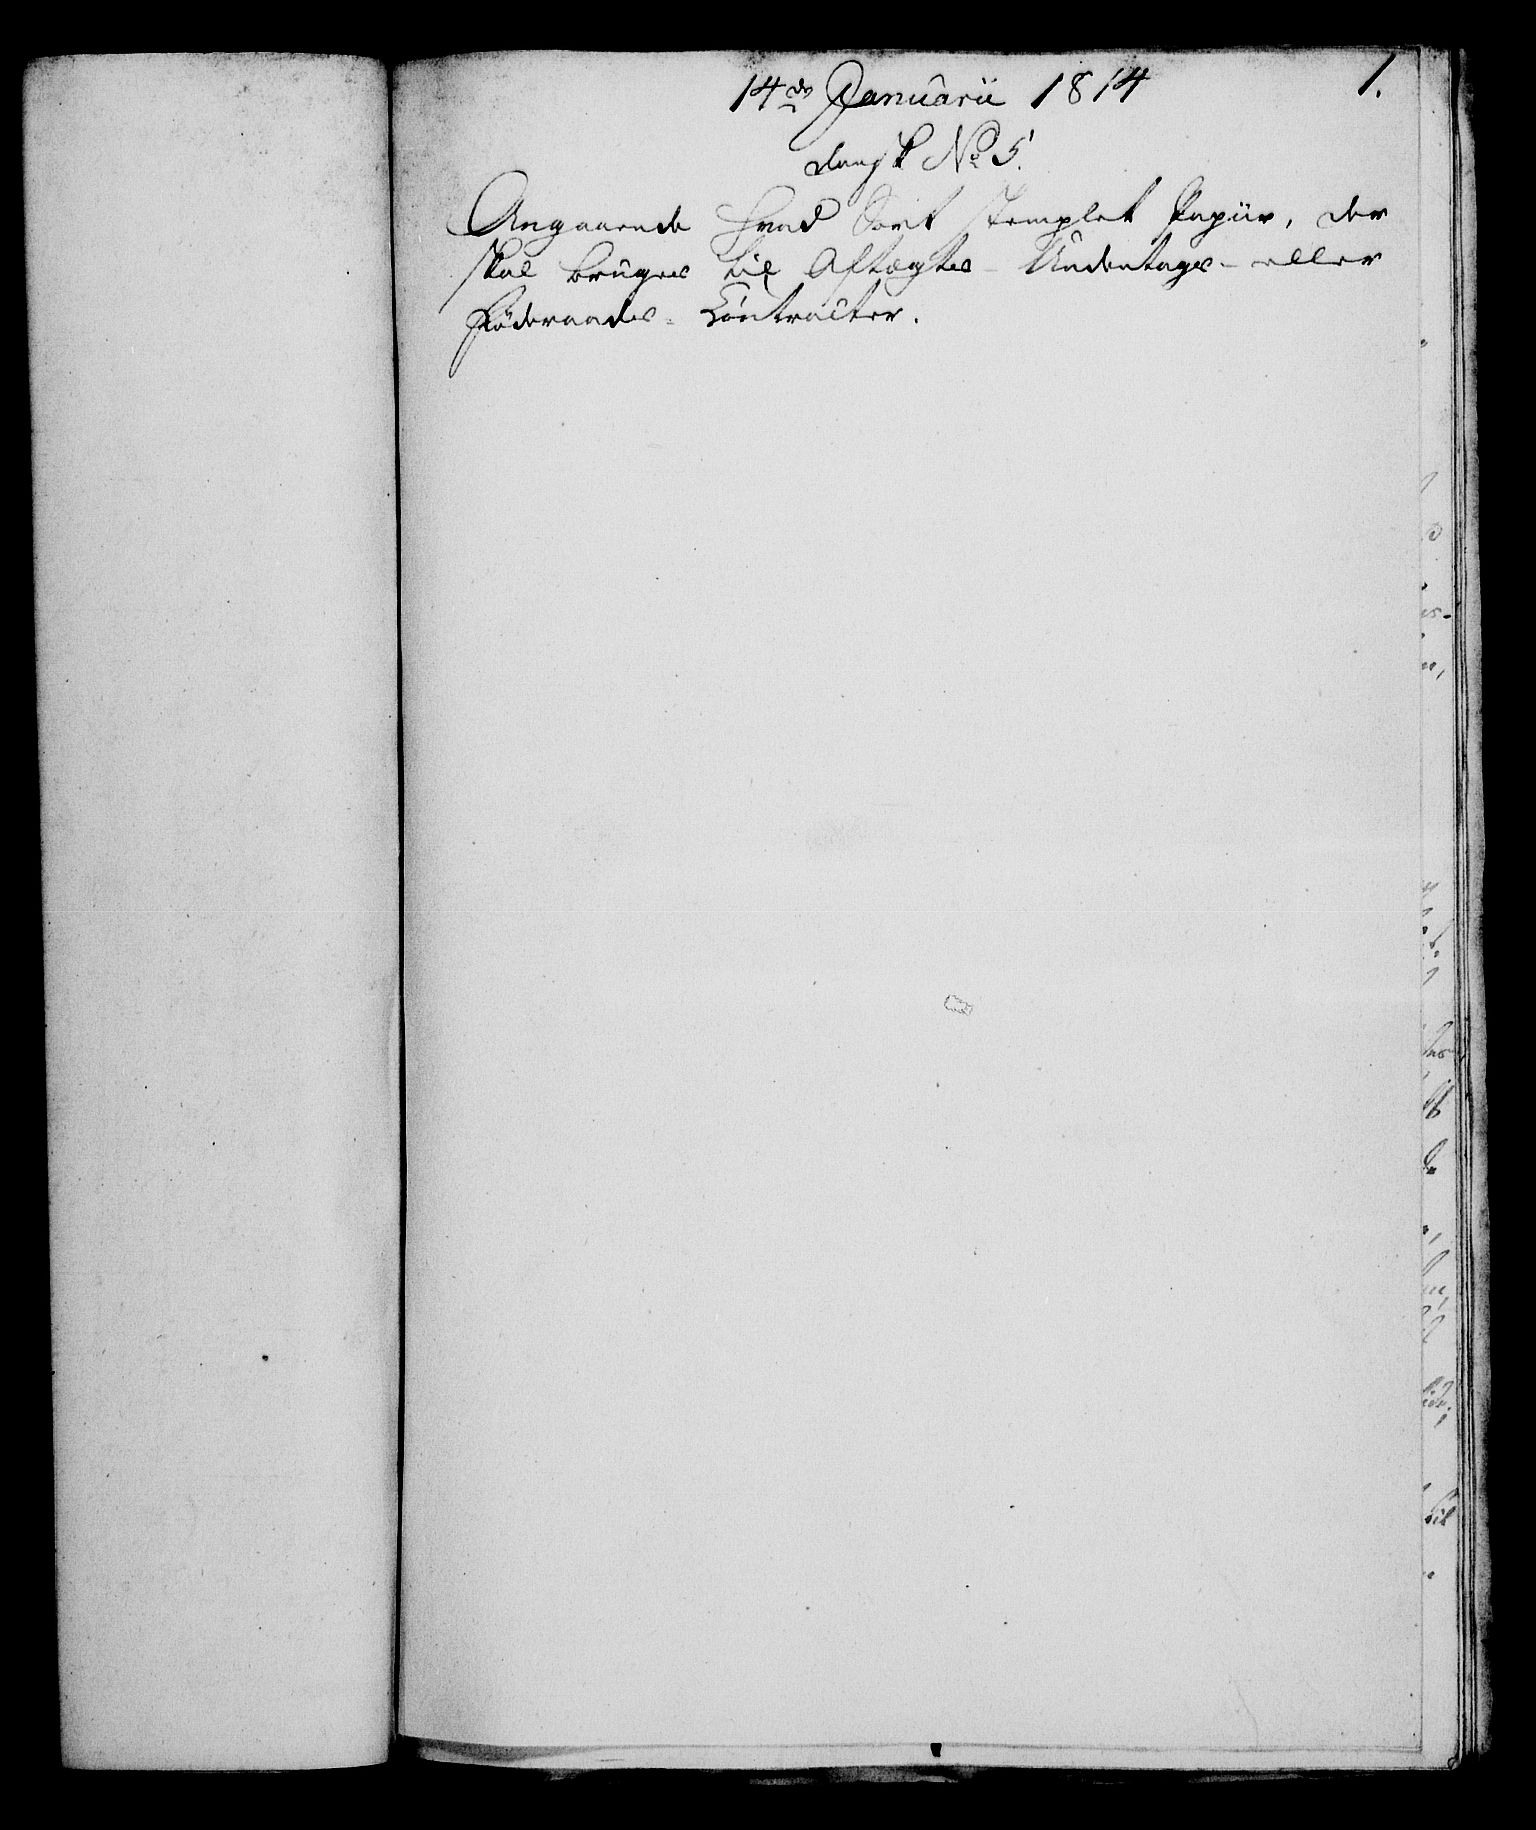 1.
14de Januarii 1814
dansk No 5.
Angaaende hvad Sort stemplet Papiir, der
skal bruges til Aftægts- Undentags- eller
Föderaads- Contracter.